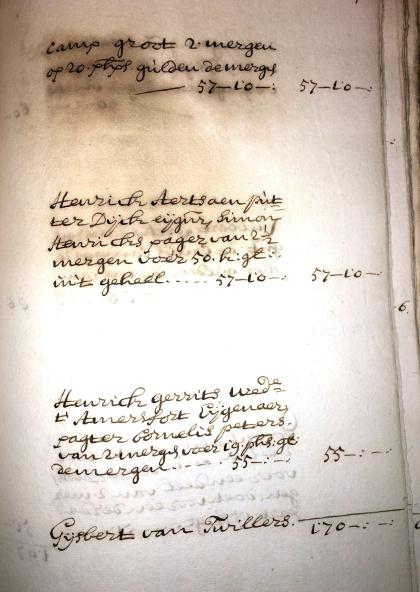 camp groot 2. mergen
op 20. phs gulden de mergen
57-10-: 57-10-:
Henrick Aertsaen put
ter Dijck eijgnr, Simon
Henricks pagter van 2½
mergen voor 50. k. gl.
int geheel..... 57-10-: 57-10-:
Henrick Gerrits
t' Amersfort Eijgenaer,
pagter Cornelis peters.
van 2 mergen voor 19. phs. gl
de mergen..... 55-:- 55-:-
Gijsbert van Twillers. 170-:-